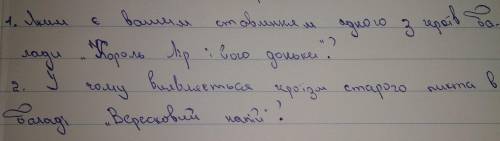 1. Яким є вашим ставлиням одного з героїв Ба-
лади „Король Лір і його доньки"?
2. У чому виявляється героїзм старого пикта в
Баладі „Вересковий напій"?